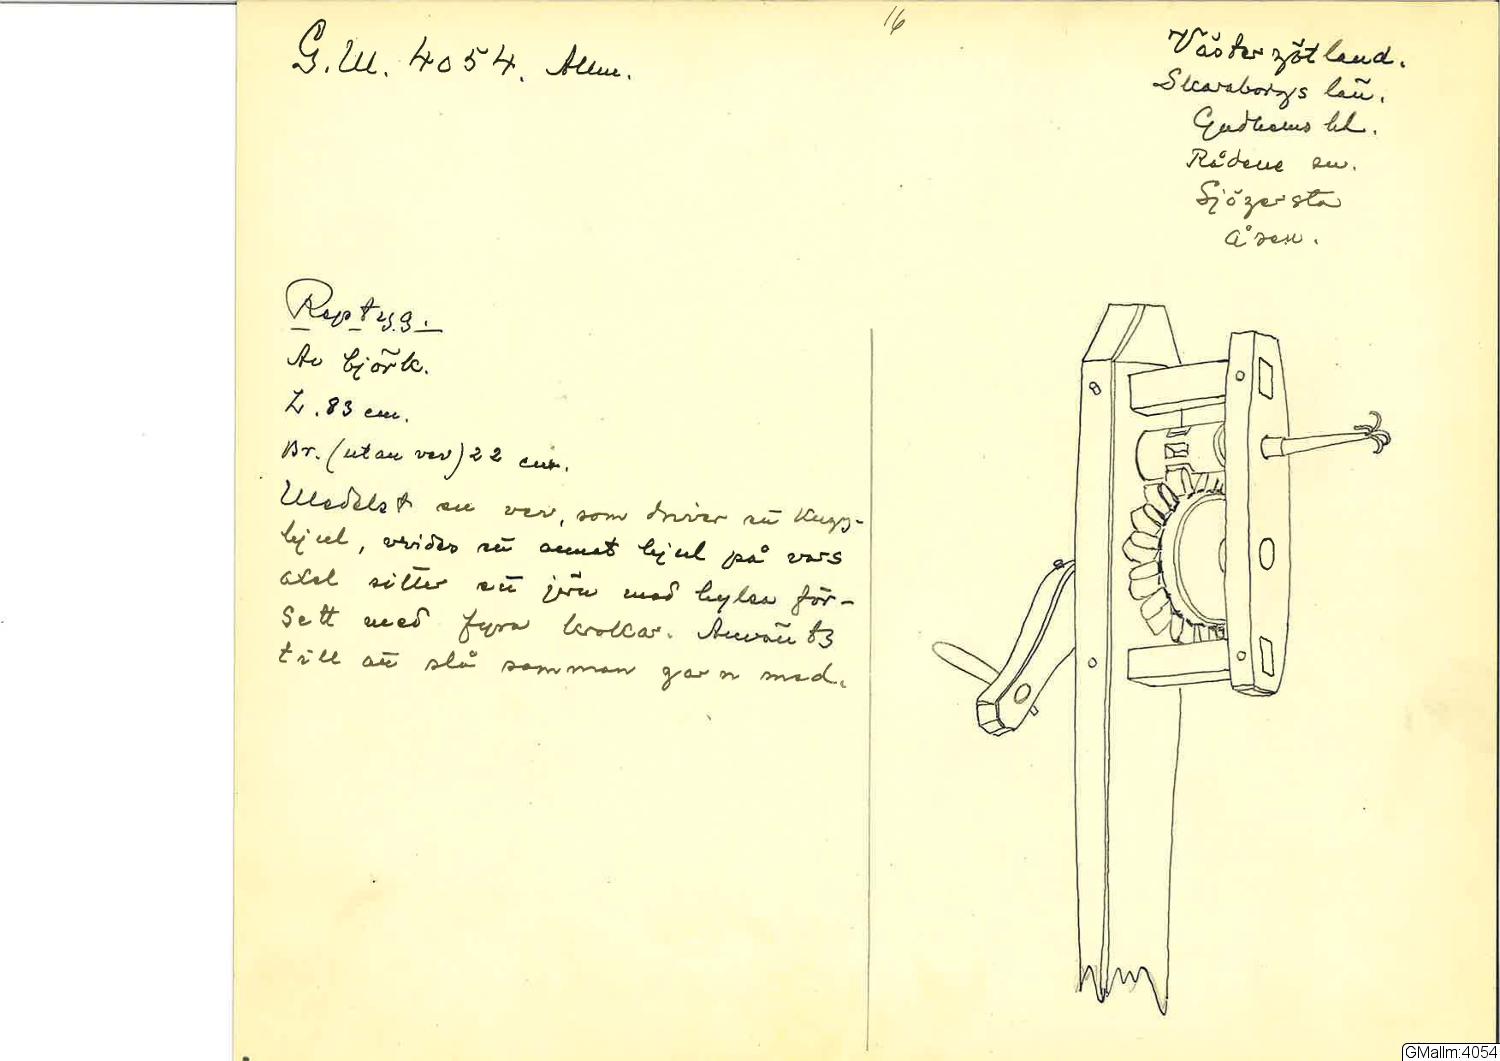 16
G.M. 4054. Allm.
Västergötland.
Skaraborgs län.
Gudhems hd.
Rådene sn.
Sjögersta
Åsen.
Reptyg.
Av björk.
L. 83 cm.
Br. (utan vev) 22 cm.
Medelst en vev, som driver ett kugg-
hjul, vrides ett annat hjul på vars
axel sitter ett järn med hylsa för-
sett med fyra krokar. Använts
till att slå samman garn med.
GMallm:4054